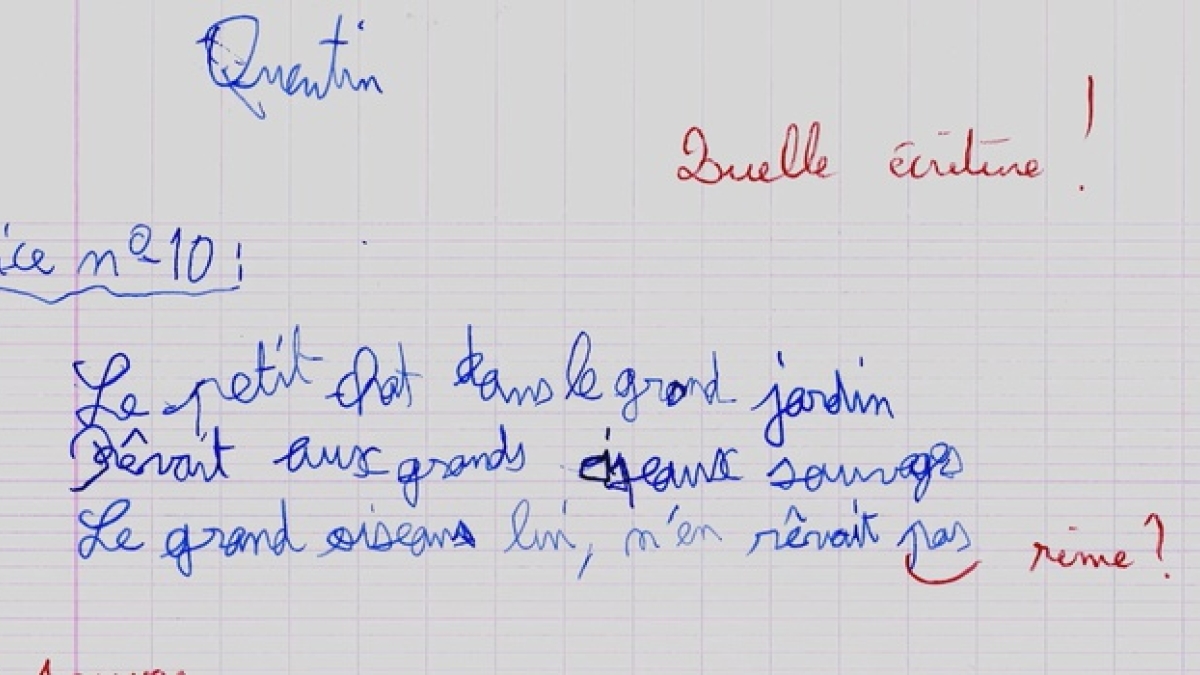 Quentin
Quelle écriture !
ice n° 10 :
Le petit chat dans le grand jardin
Rêvait aux grands oiseaux sauvages
Le grand oiseau lui, n'en rêvait pas rime ?